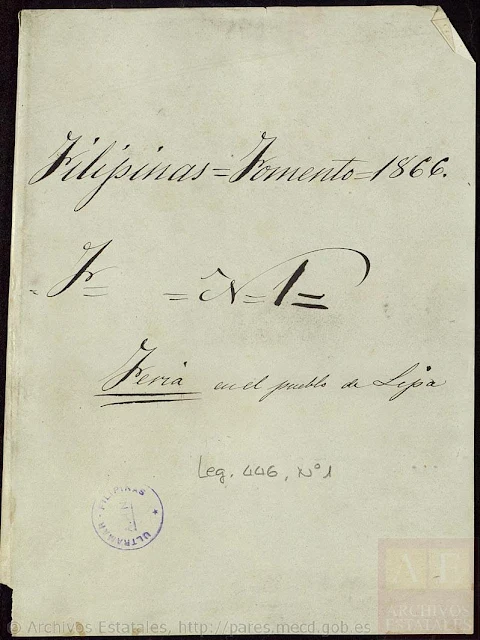 Filipinas=Fomento=1866.
=F= =N=1=
Feria en el pueblo de Lipa
Leg. 446, Nº 1
ULTRAMAR · FILIPINAS
ARCHIVOS
ESTATALES
© Archivos Estatales, http://pares.mecd.gob.es